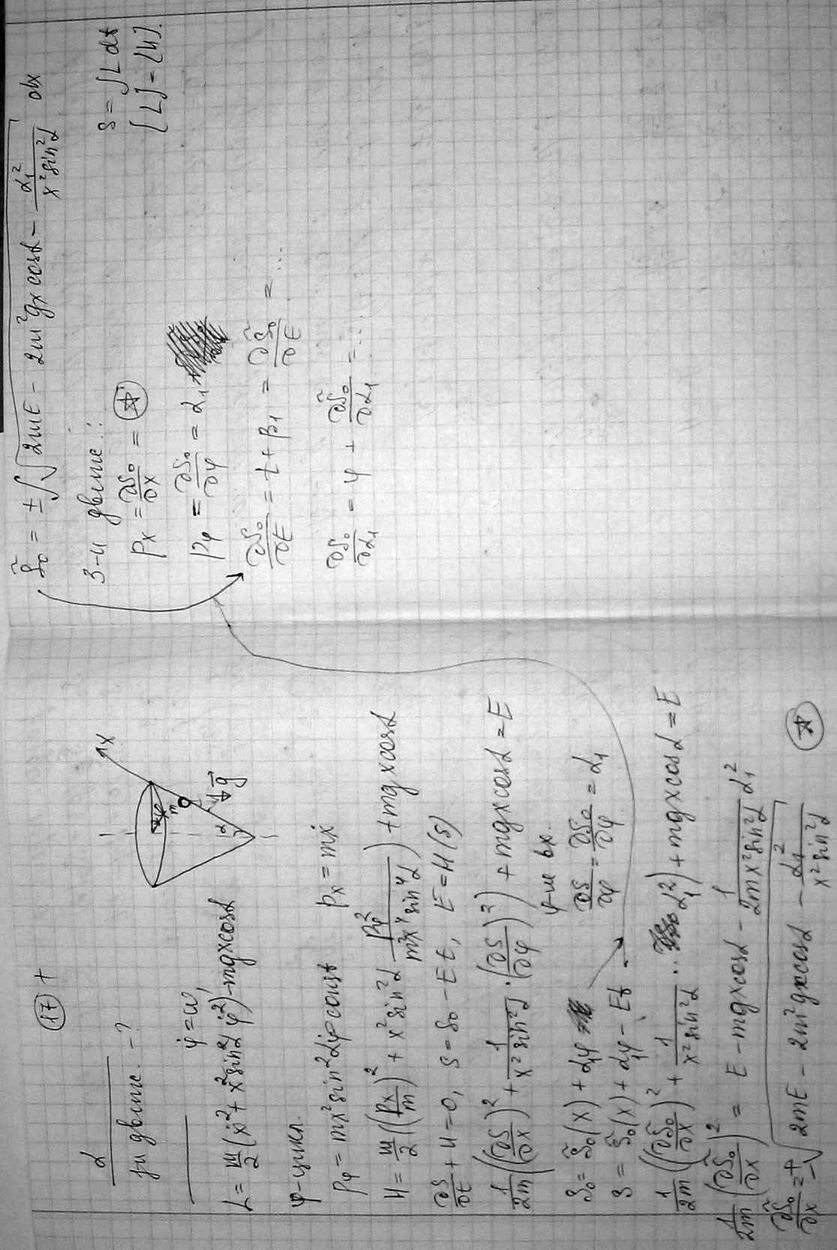 (17) +
α
з-н движ. - ?
φ̇ = ω,
L = m/2 (ẋ² + x² sin²α φ̇²) - mgx cosα
φ - цикл.
p_φ = mx² sin²α φ̇ = const   p_x = mẋ
H = m/2 ((p_x/m)² + x² sin²α p_φ²/(m²x⁴ sin⁴α)) + mgx cosα
∂S/∂t + H = 0, S = S₀ - Et, E = H(S)
1/2m ((∂S/∂x)² + 1/(x² sin²α) · (∂S/∂φ)²) + mgx cosα = E
φ - не вх.
S₀ = S̃₀(x) + α₁φ   ∂S/∂φ = ∂S₀/∂φ = α₁
S = S̃₀(x) + α₁φ - Et
1/2m ((∂S̃₀/∂x)² + 1/(x² sin²α) · α₁²) + mgx cosα = E
1/2m (∂S̃₀/∂x)² = E - mgx cosα - 1/(2mx² sin²α) α₁²
∂S̃₀/∂x = ±√(2mE - 2m²gx cosα - α₁²/(x² sin²α)) ☆
x
m
α
g
S̃₀ = ±∫√(2mE - 2m²gx cosα - α₁²/(x² sin²α)) dx
З-н движ.:
p_x = ∂S₀/∂x = ☆
p_φ = ∂S₀/∂φ = α₁
∂S₀/∂E = t + β₁ = ∂S̃₀/∂E = ...
∂S₀/∂α₁ = φ + ∂S̃₀/∂α₁ = ...
S = ∫L dt
[L] = [H].